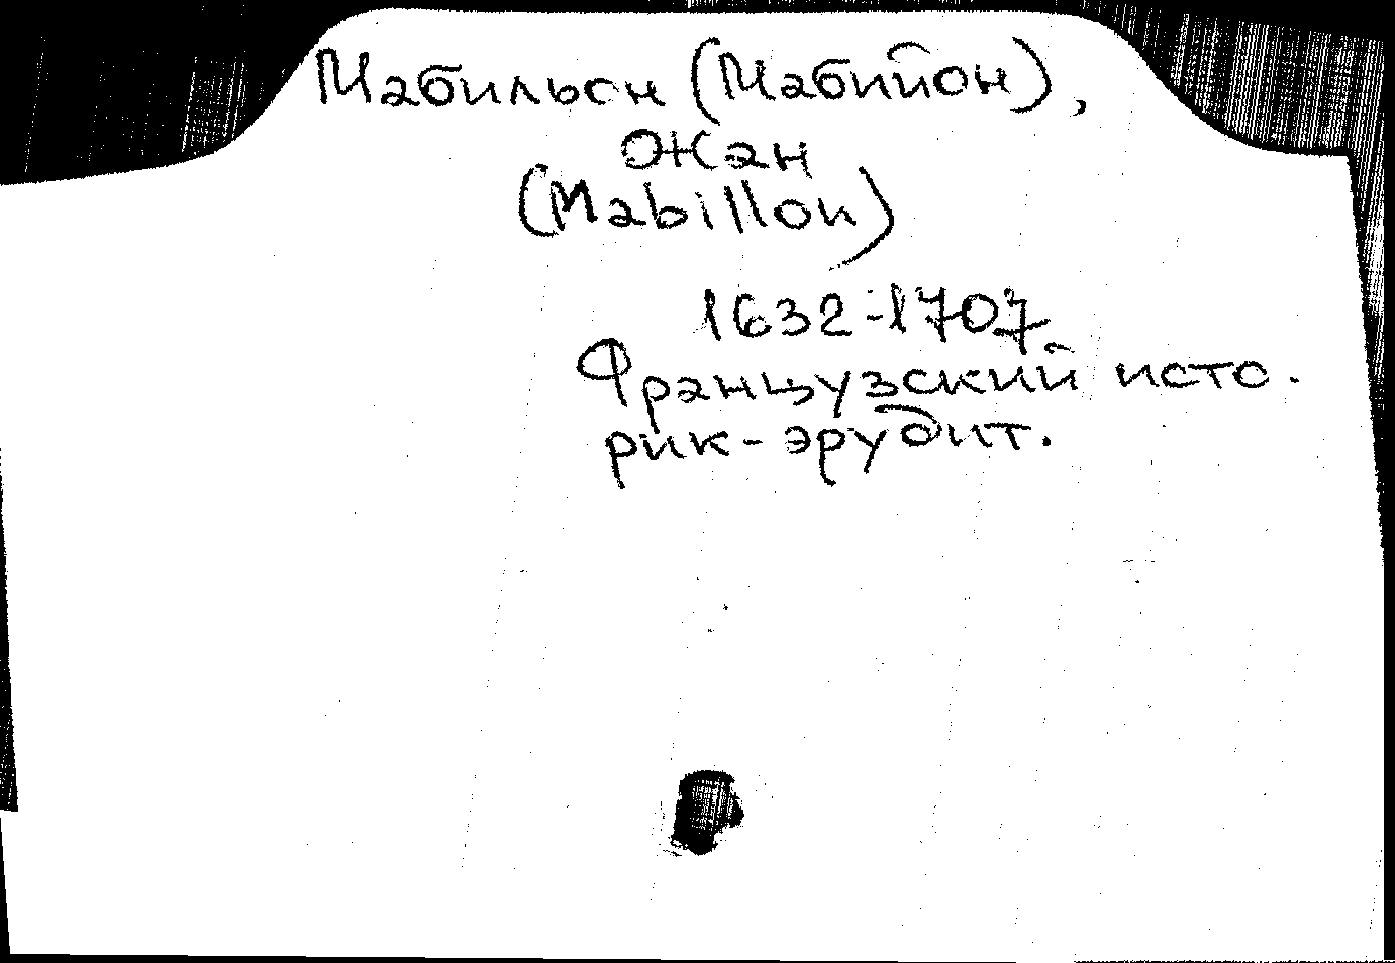 Мабильон (Мабийон),
Жан
(Mabillon)
1632-1707
Французский исто-
рик-эрудит.